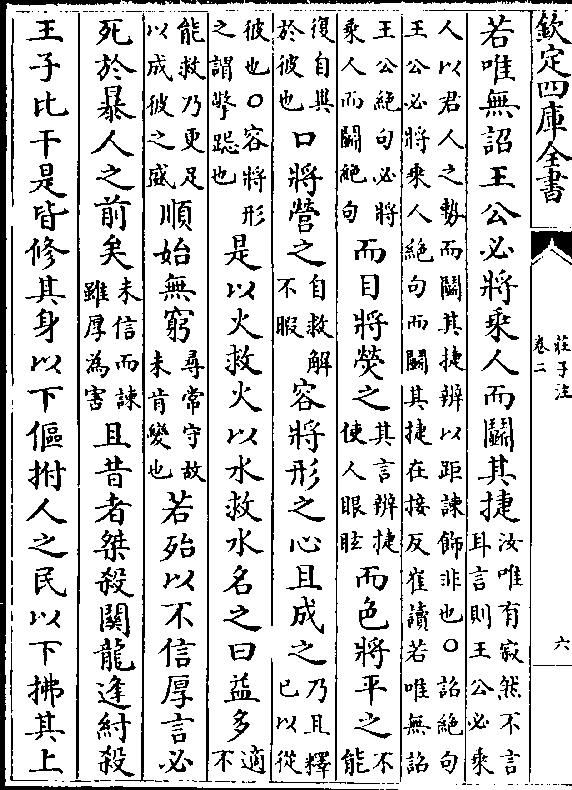 欽定四庫全書
莊子注
卷二
六
若唯無詔王公必將乘人而鬭其捷汝唯有寂然不言耳言則王公必乘
人以君人之勢而鬭其捷辨以距諫飾非也〇詔絶句王公必將乘人絶句而鬭其捷在接反崔讀若唯無詔
王公絶句必將乘人而鬭絶句而目將熒之其言辨捷使人眼眩而色將平之不能
復自異於彼也口將營之自救解不暇容將形之心且成之乃且釋已以從
彼也〇容將形之謂擎跽也是以火救火以水救水名之曰益多適不
能救乃更足以成彼之盛順始無窮尋常守故未肯變也若殆以不信厚言必
死於暴人之前矣未信而諫雖厚為害且昔者桀殺關龍逢紂殺
王子比干是皆修其身以下傴拊人之民以下拂其上